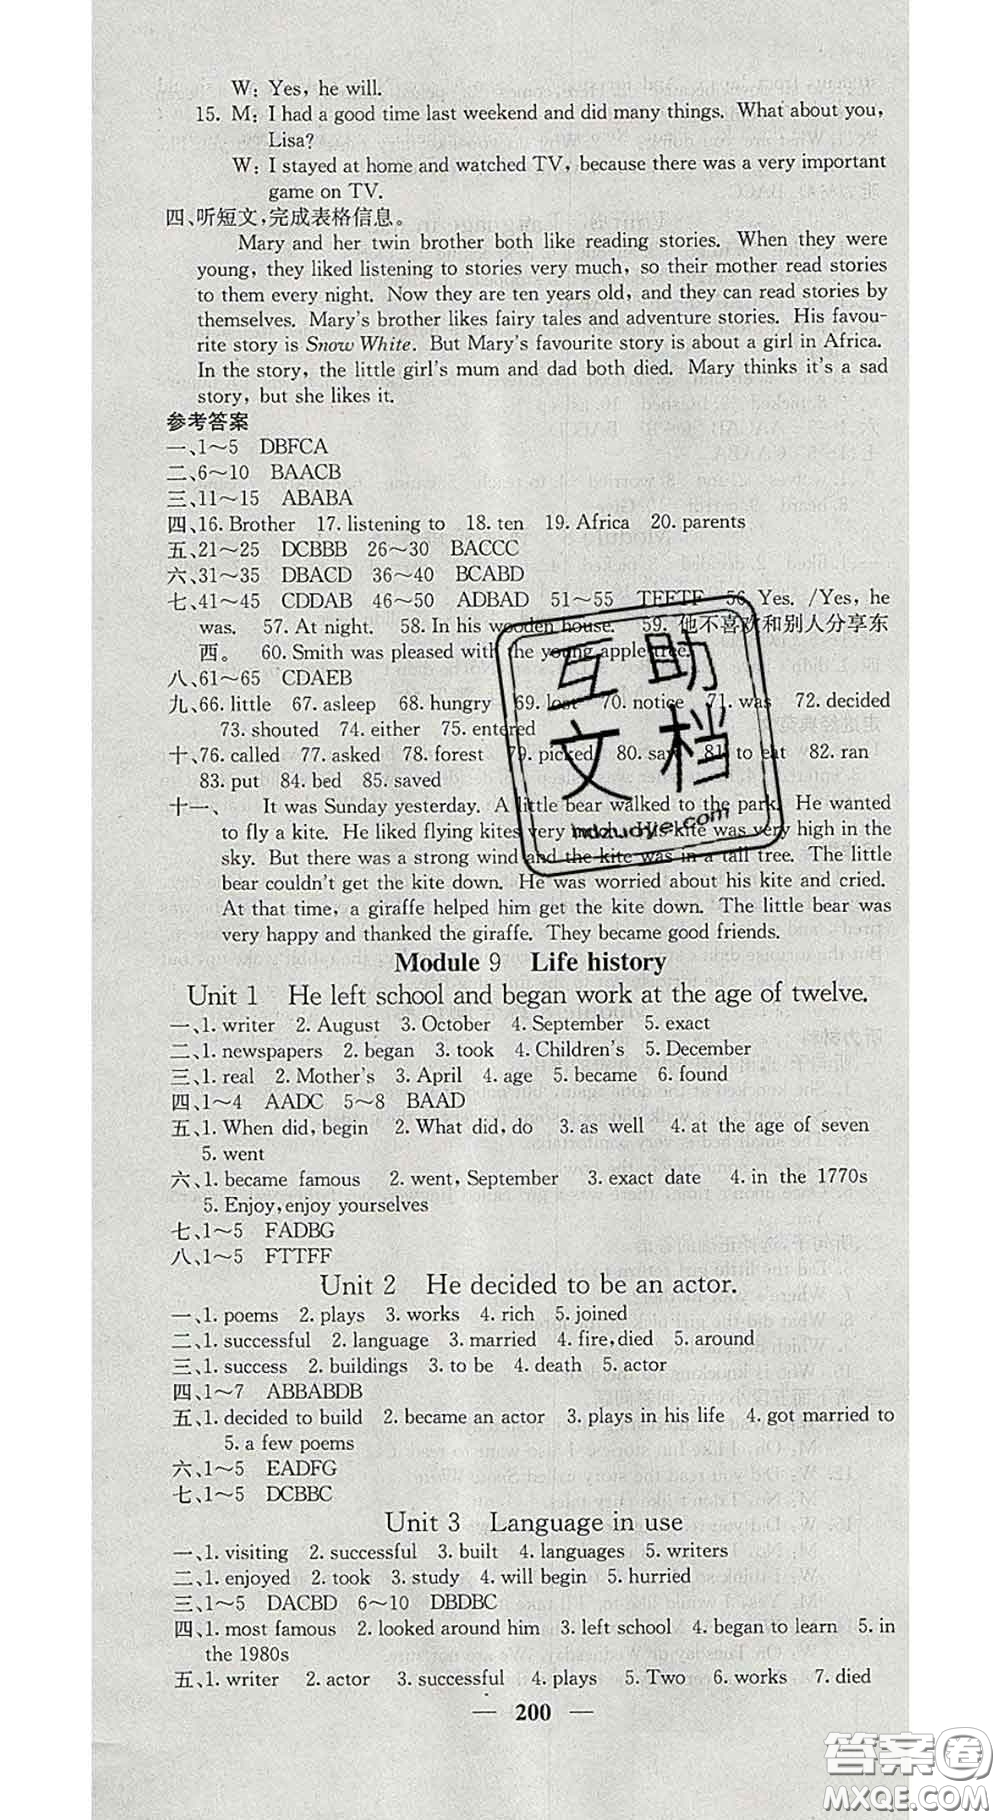 W: Yes, he will.
15. M: I had a good time last weekend and did many things. What about you,
Lisa?
W: I stayed at home and watched TV, because there was a very important
game on TV.
四、听短文,完成表格信息。
Mary and her twin brother both like reading stories. When they were
young, they liked listening to stories very much, so their mother read stories
to them every night. Now they are ten years old, and they can read stories by
themselves. Mary's brother likes fairy tales and adventure stories. His favou-
rite story is Snow White. But Mary's favourite story is about a girl in Africa.
In the story, the little girl's mum and dad both died. Mary thinks it's a sad
story, but she likes it.
参考答案
一、1~5 DBFCA
二、6~10 BAACB
三、11~15 ABABA
四、16. Brother 17. listening to 18. ten 19. Africa 20. parents
五、21~25 DCBBB 26~30 BACCC
六、31~35 DBACD 36~40 BCABD
七、41~45 CDDAB 46~50 ADBAD 51~55 TFFTF 56. Yes. /Yes, he
was. 57. At night. 58. In his wooden house. 59. 他不喜欢和别人分享东
西。 60. Smith was pleased with the young apple tree.
八、61~65 CDAEB
九、66. little 67. asleep 68. hungry 69. lost 70. notice 71. was 72. decided
73. shouted 74. either 75. entered
十、76. called 77. asked 78. forest 79. picked 80. saw 81. to eat 82. ran
83. put 84. bed 85. saved
十一、 It was Sunday yesterday. A little bear walked to the park. He wanted
to fly a kite. He liked flying kites very much. His kite was very high in the
sky. But there was a strong wind and the kite was in a tall tree. The little
bear couldn't get the kite down. He was worried about his kite and cried.
At that time, a giraffe helped him get the kite down. The little bear was
very happy and thanked the giraffe. They became good friends.
Module 9 Life history
Unit 1 He left school and began work at the age of twelve.
一、1. writer 2. August 3. October 4. September 5. exact
二、1. newspapers 2. began 3. took 4. Children's 5. December
三、1. real 2. Mother's 3. April 4. age 5. became 6. found
四、1~4 AADC 5~8 BAAD
五、1. When did, begin 2. What did, do 3. as well 4. at the age of seven
5. went
六、1. became famous 2. went, September 3. exact date 4. in the 1770s
5. Enjoy, enjoy yourselves
七、1~5 FADBG
八、1~5 FTTFF
Unit 2 He decided to be an actor.
一、1. poems 2. plays 3. works 4. rich 5. joined
二、1. successful 2. language 3. married 4. fire, died 5. around
三、1. success 2. buildings 3. to be 4. death 5. actor
四、1~7 ABBABDB
五、1. decided to build 2. became an actor 3. plays in his life 4. got married to
5. a few poems
六、1~5 EADFG
七、1~5 DCBBC
Unit 3 Language in use
一、1. visiting 2. successful 3. built 4. languages 5. writers
二、1. enjoyed 2. took 3. study 4. will begin 5. hurried
三、1~5 DACBD 6~10 DBDBC
四、1. most famous 2. looked around him 3. left school 4. began to learn 5. in
the 1980s
五、1. writer 2. actor 3. successful 4. plays 5. Two 6. works 7. died
— 200 —
互助
文档
hdzuoye.com
答案卷
MXQE.COM